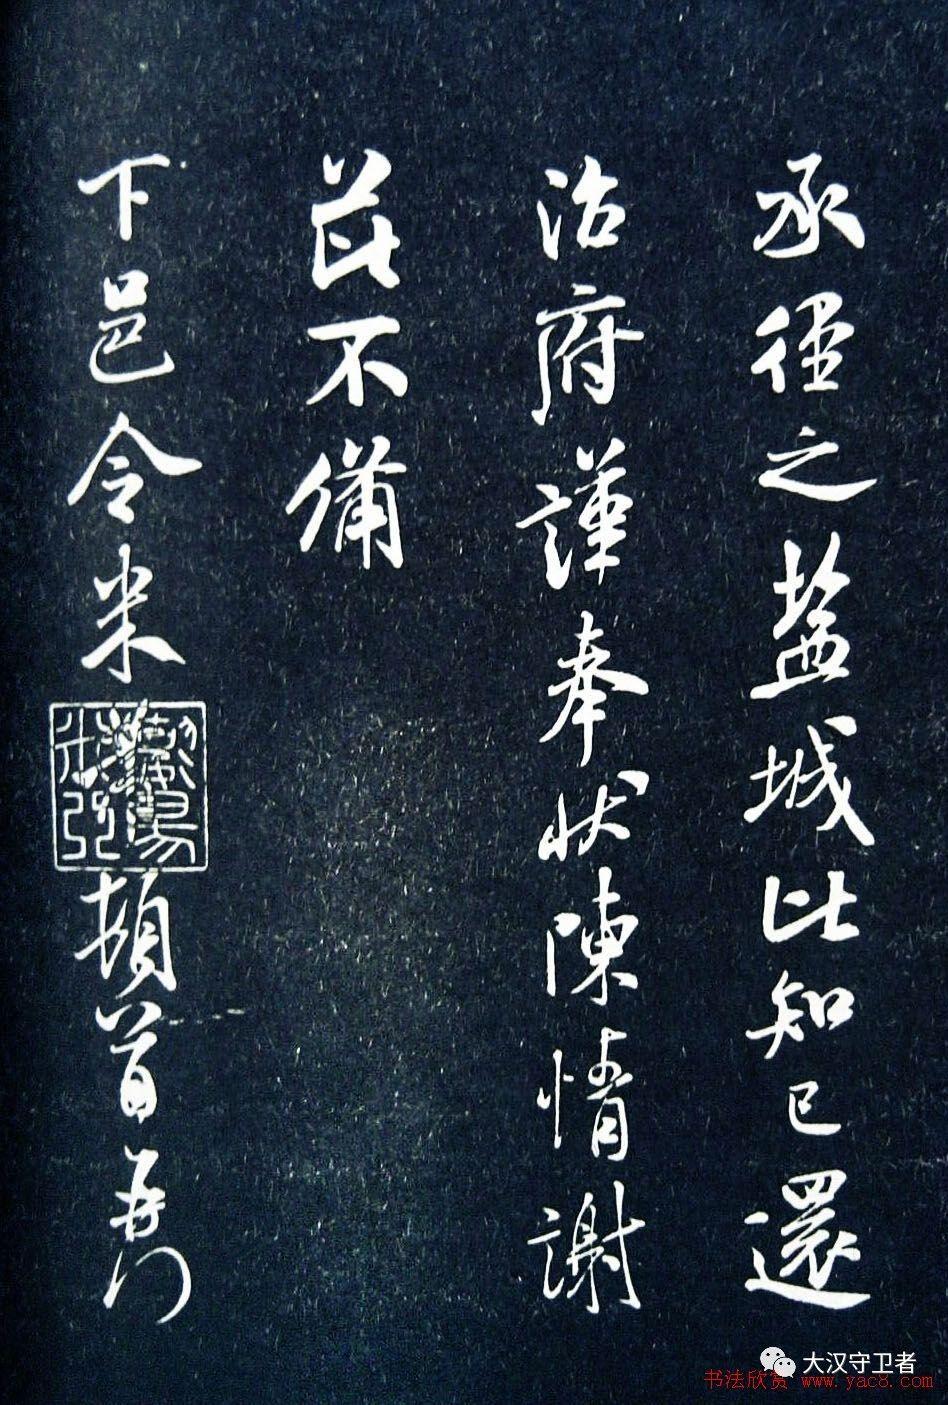 承徑之盐城比知已還
治府謹奉狀陳情謝
不備
下邑令米頓首再拜
大汉守卫者
书法欣赏 www.yac8.com